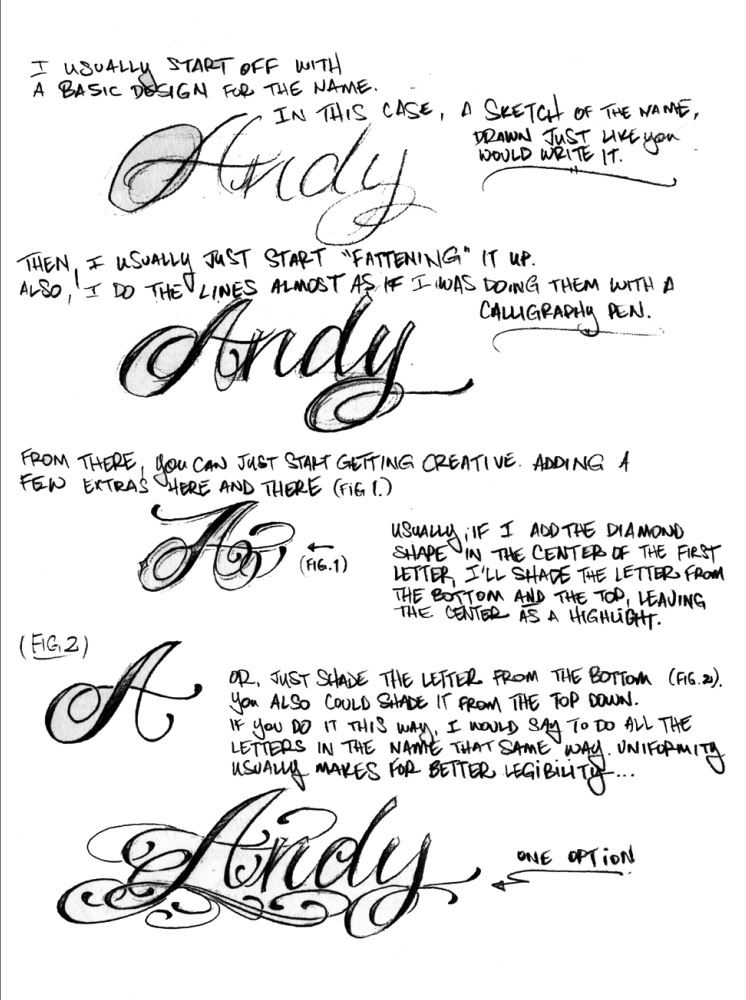 I USUALLY START OFF WITH
A BASIC DESIGN FOR THE NAME.
IN THIS CASE, A SKETCH OF THE NAME,
DRAWN JUST LIKE you
WOULD WRITE IT.
Andy
THEN, I USUALLY JUST START "FATTENING" IT UP.
ALSO, I DO THE LINES ALMOST AS IF I WAS DOING THEM WITH A
CALLIGRAPHY PEN.
Andy
FROM THERE, you CAN JUST START GETTING CREATIVE. ADDING A
FEW EXTRAS HERE AND THERE (FIG 1.)
A
(FIG. 1)
USUALLY, IF I ADD THE DIAMOND
SHAPE IN THE CENTER OF THE FIRST
LETTER, I'LL SHADE THE LETTER FROM
THE BOTTOM AND THE TOP, LEAVING
THE CENTER AS A HIGHLIGHT.
(FIG. 2)
A
OR, JUST SHADE THE LETTER FROM THE BOTTOM (FIG. 2).
you ALSO COULD SHADE IT FROM THE TOP DOWN.
IF you DO IT THIS WAY, I WOULD SAY TO DO ALL THE
LETTERS IN THE NAME THAT SAME WAY. UNIFORMITY
USUALLY MAKES FOR BETTER LEGIBILITY...
Andy
ONE OPTION